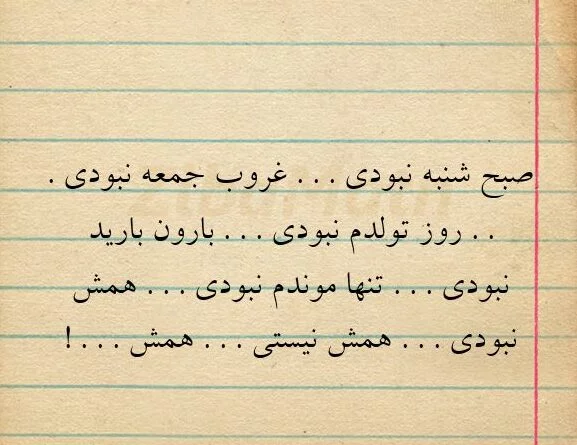 صبح شنبه نبودی . . . غروب جمعه نبودی .
. . روز تولدم نبودی . . . بارون بارید
نبودی . . . تنها موندم نبودی . . . همش
نبودی . . . همش نیستی . . . همش . . . !